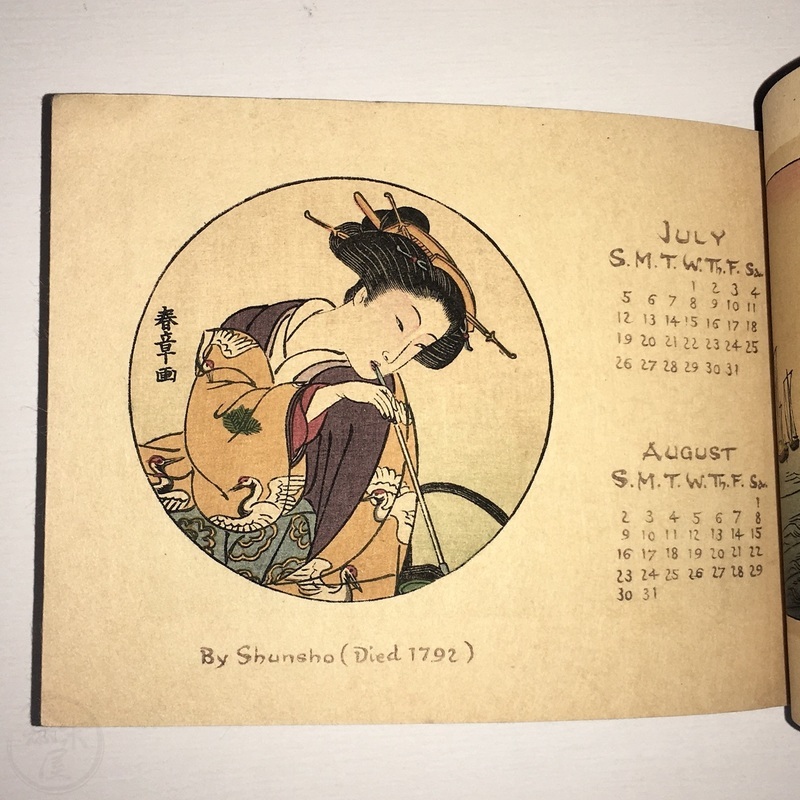 春章画
By Shunsho (Died 1792)
JULY
S. M. T. W. Th. F. Sa.
1 2 3 4
5 6 7 8 9 10 11
12 13 14 15 16 17 18
19 20 21 22 23 24 25
26 27 28 29 30 31
AUGUST
S. M. T. W. Th. F. Sa.
1
2 3 4 5 6 7 8
9 10 11 12 13 14 15
16 17 18 19 20 21 22
23 24 25 26 27 28 29
30 31